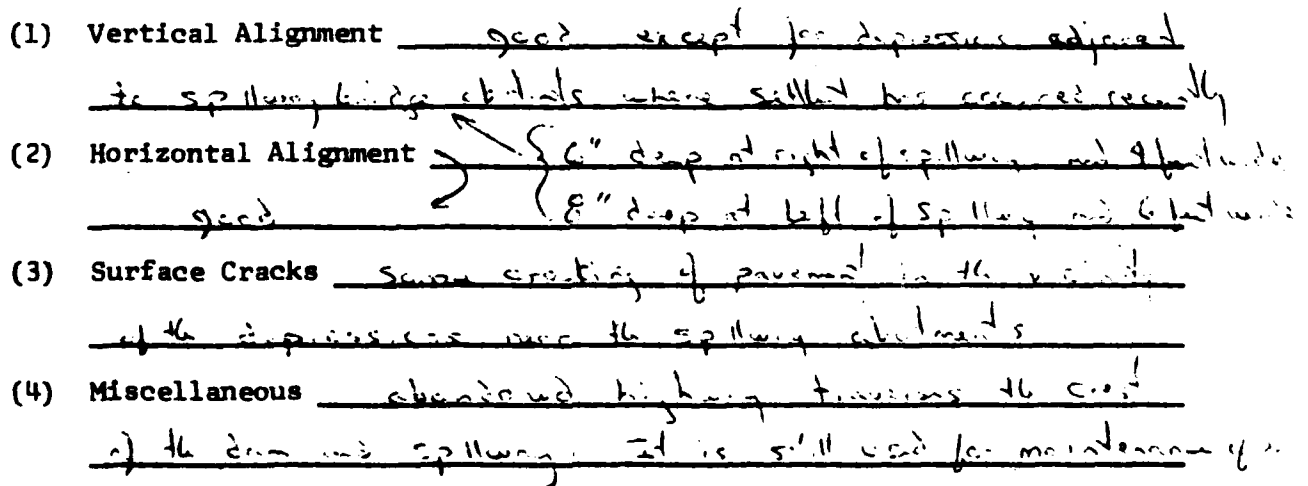 (1) Vertical Alignment good except for depressions adjacent
to spillway bridge abutments where settlement has occurred recently
(2) Horizontal Alignment { 6" deep at right of spillway and 4 feet wide
good 8" deep at left of spillway and 6 feet wide
(3) Surface Cracks some cracking of pavement in the vicinity
of the depressions near the spillway abutments
(4) Miscellaneous abandoned highway traverses the crest
of the dam and spillway. It is still used for maintenance of